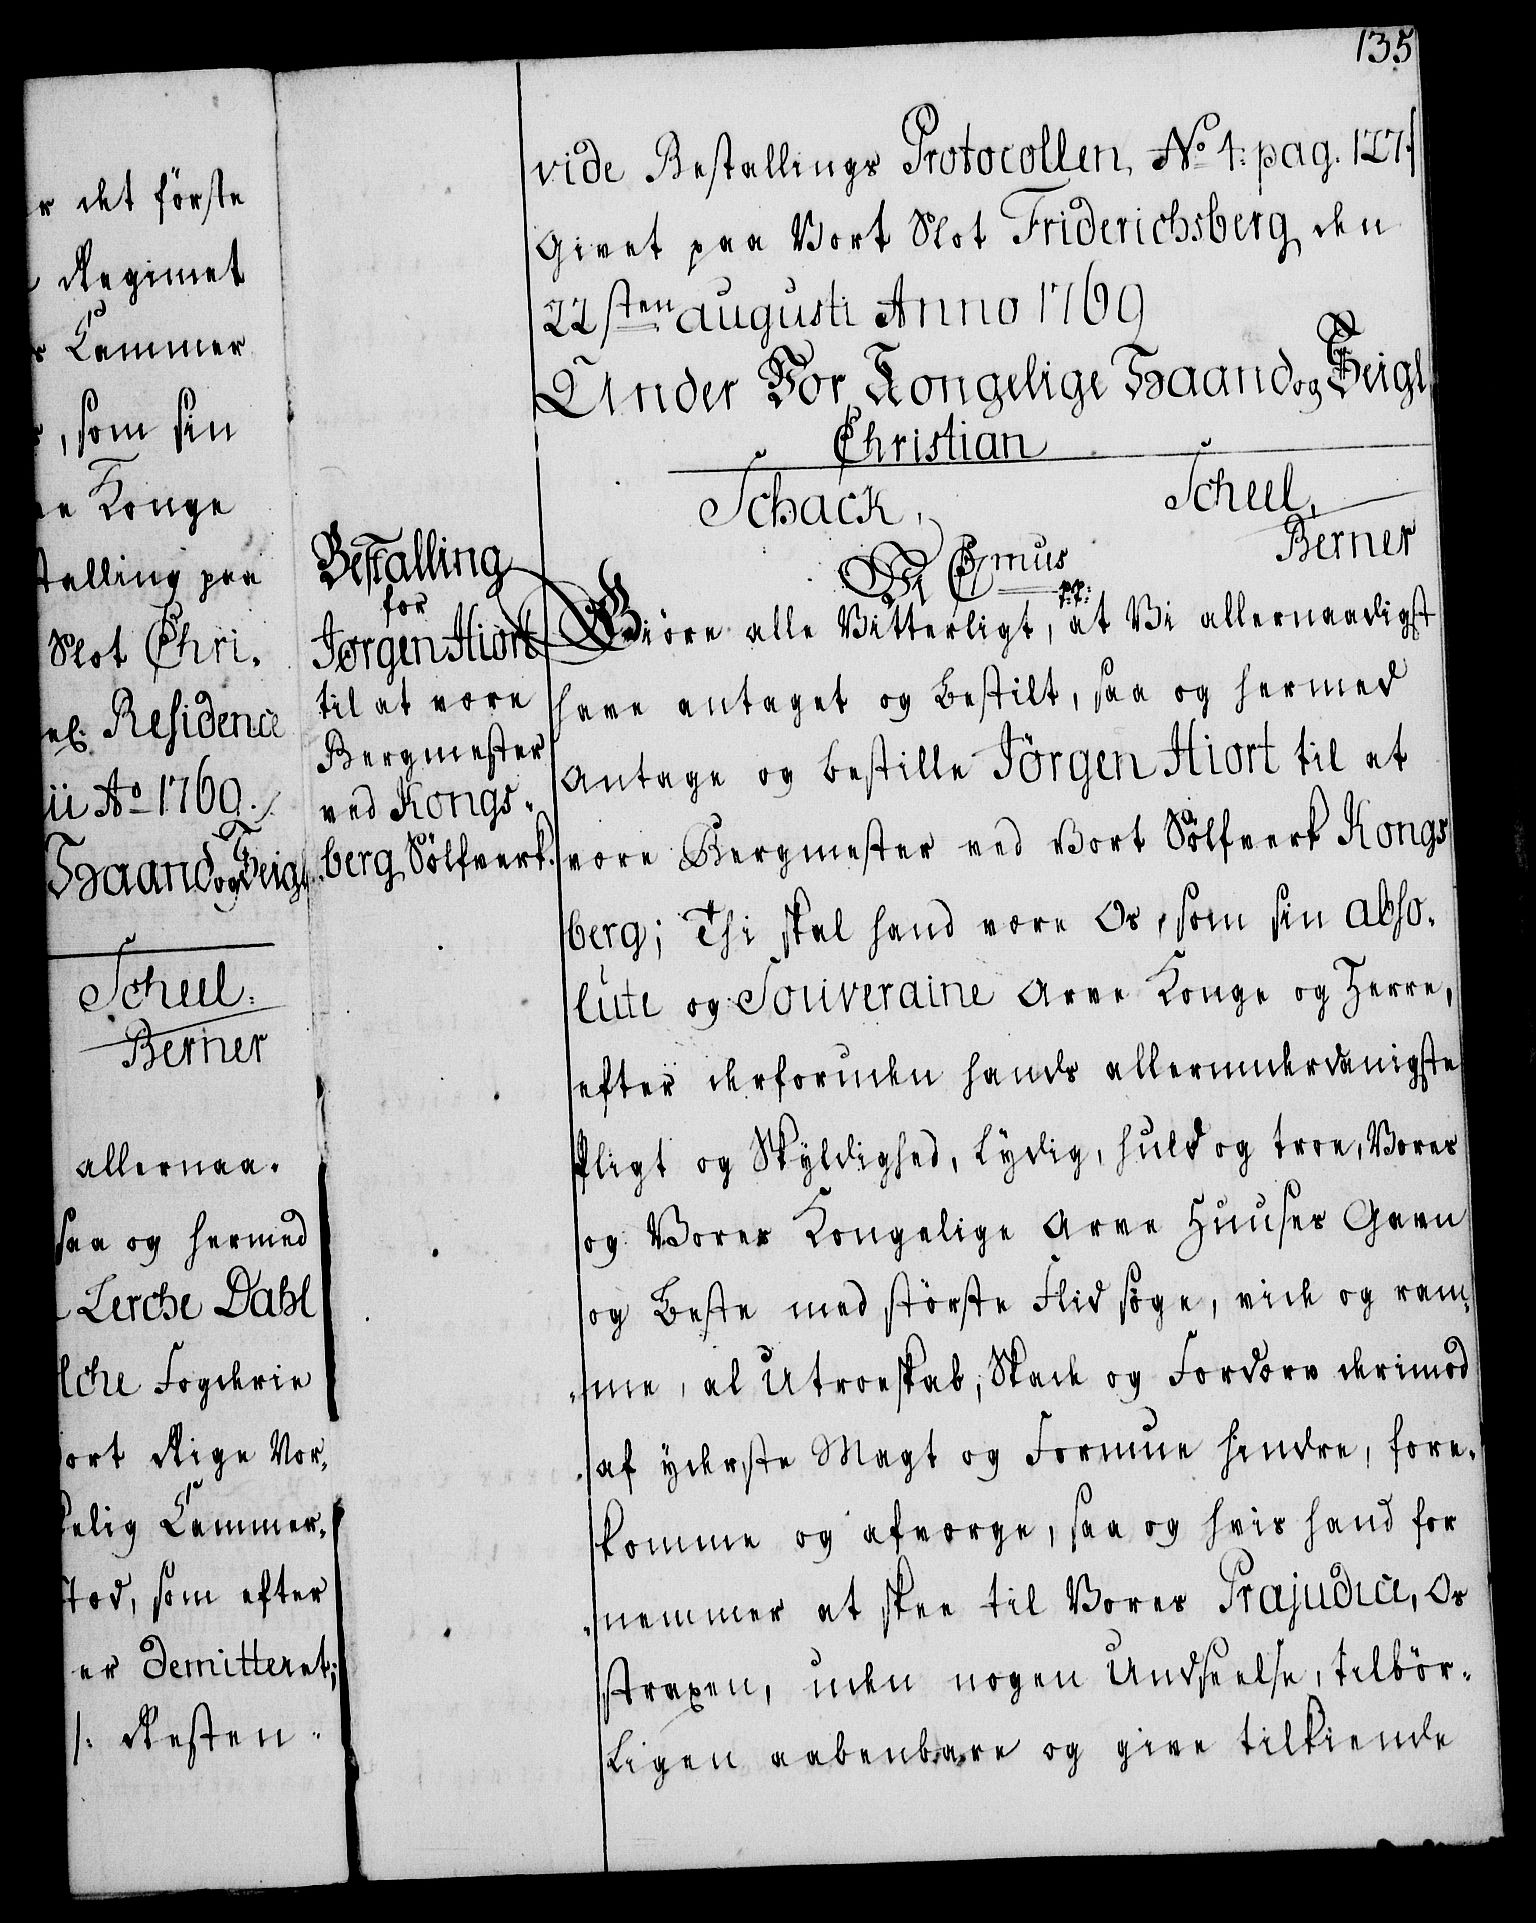 135
r det förste
Regimet
Cammer
, som sin
Konge
talling paa
Slot Chri.
el. Residence
ii Ao 1769.
Haand og Seigl
Scheel.
Berner
allernaa.
saa og hermed
Lerche Dahl
lche Fogderie
ort Rige Nor.
elig Cammer.
tod, som efter
er demitteret;
/: Resten
vide Bestallings Protocollen, No 4: pag. 127./
Givet paa Vort Slot Friderichsberg den
22sten augusti Anno 1769
Under Vor Kongelige Haand og Seigl
Christian
Schack,
Scheel,
Berner
Bestalling
for
Jørgen Hiort
til at være
Bergmester
ved Kongs-
berg Sölfverk.
Vi Cmus
p.p:
Giöre alle Vitterligt, at Vi allernaadigst
have antaget og bestilt, saa og hermed
Antage og bestille Jörgen Hiort til at
være Bergmester ved Vort Sölfverk Kongs
berg; Thi skal hand være Os, som sin abso.
lute og Souveraine Arve Konge og Herre,
efter derforuden hands allerunderdanigste
Pligt og Skyldighed, Lydig, huld og troe, Vores
og Vores Kongelige Arve Huuses Gavn
og Beste med störste Flid söge, vide og ram,
me, al Utroeskab, Skade og Fordærv derimod
af yderste Magt og Formue hindre, fore.
komme og afværge, saa og hvis hand for
nemmer at skee til Vores Præjudice, Os
straxen, uden nogen Undseelse, tilbör.
Ligen aabenbare og give tilkiende